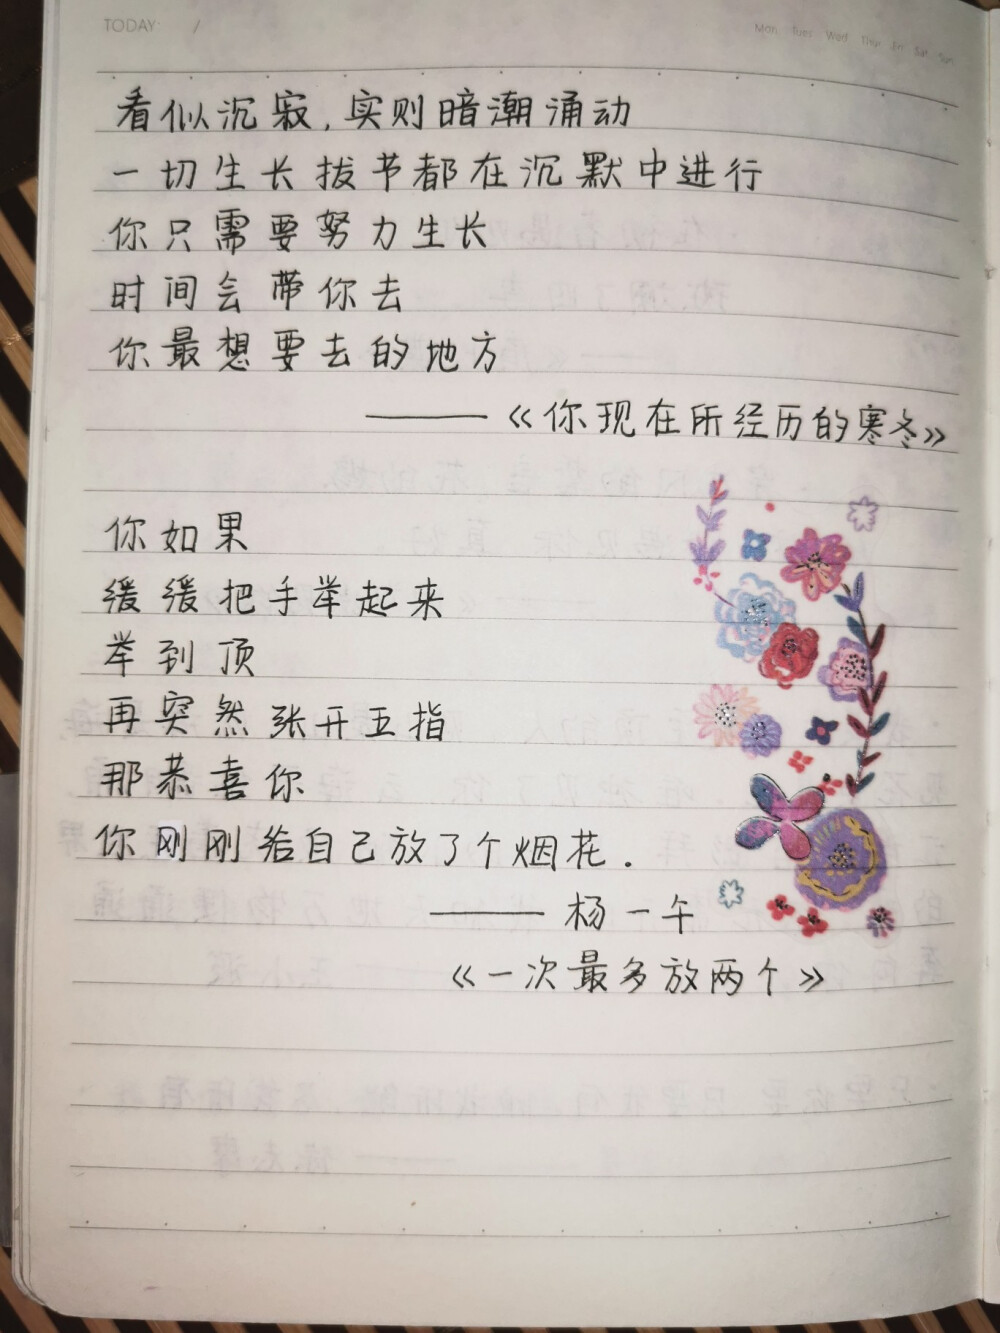 TODAY: /
Mon Tues Wed Thur Fri Sat Sun
看似沉寂,实则暗潮涌动
一切生长拔节都在沉默中进行
你只需要努力生长
时间会带你去
你最想要去的地方
——《你现在所经历的寒冬》
你如果
缓缓把手举起来
举到顶
再突然张开五指
那恭喜你
你刚刚给自己放了个烟花.
—— 杨一午
《一次最多放两个》